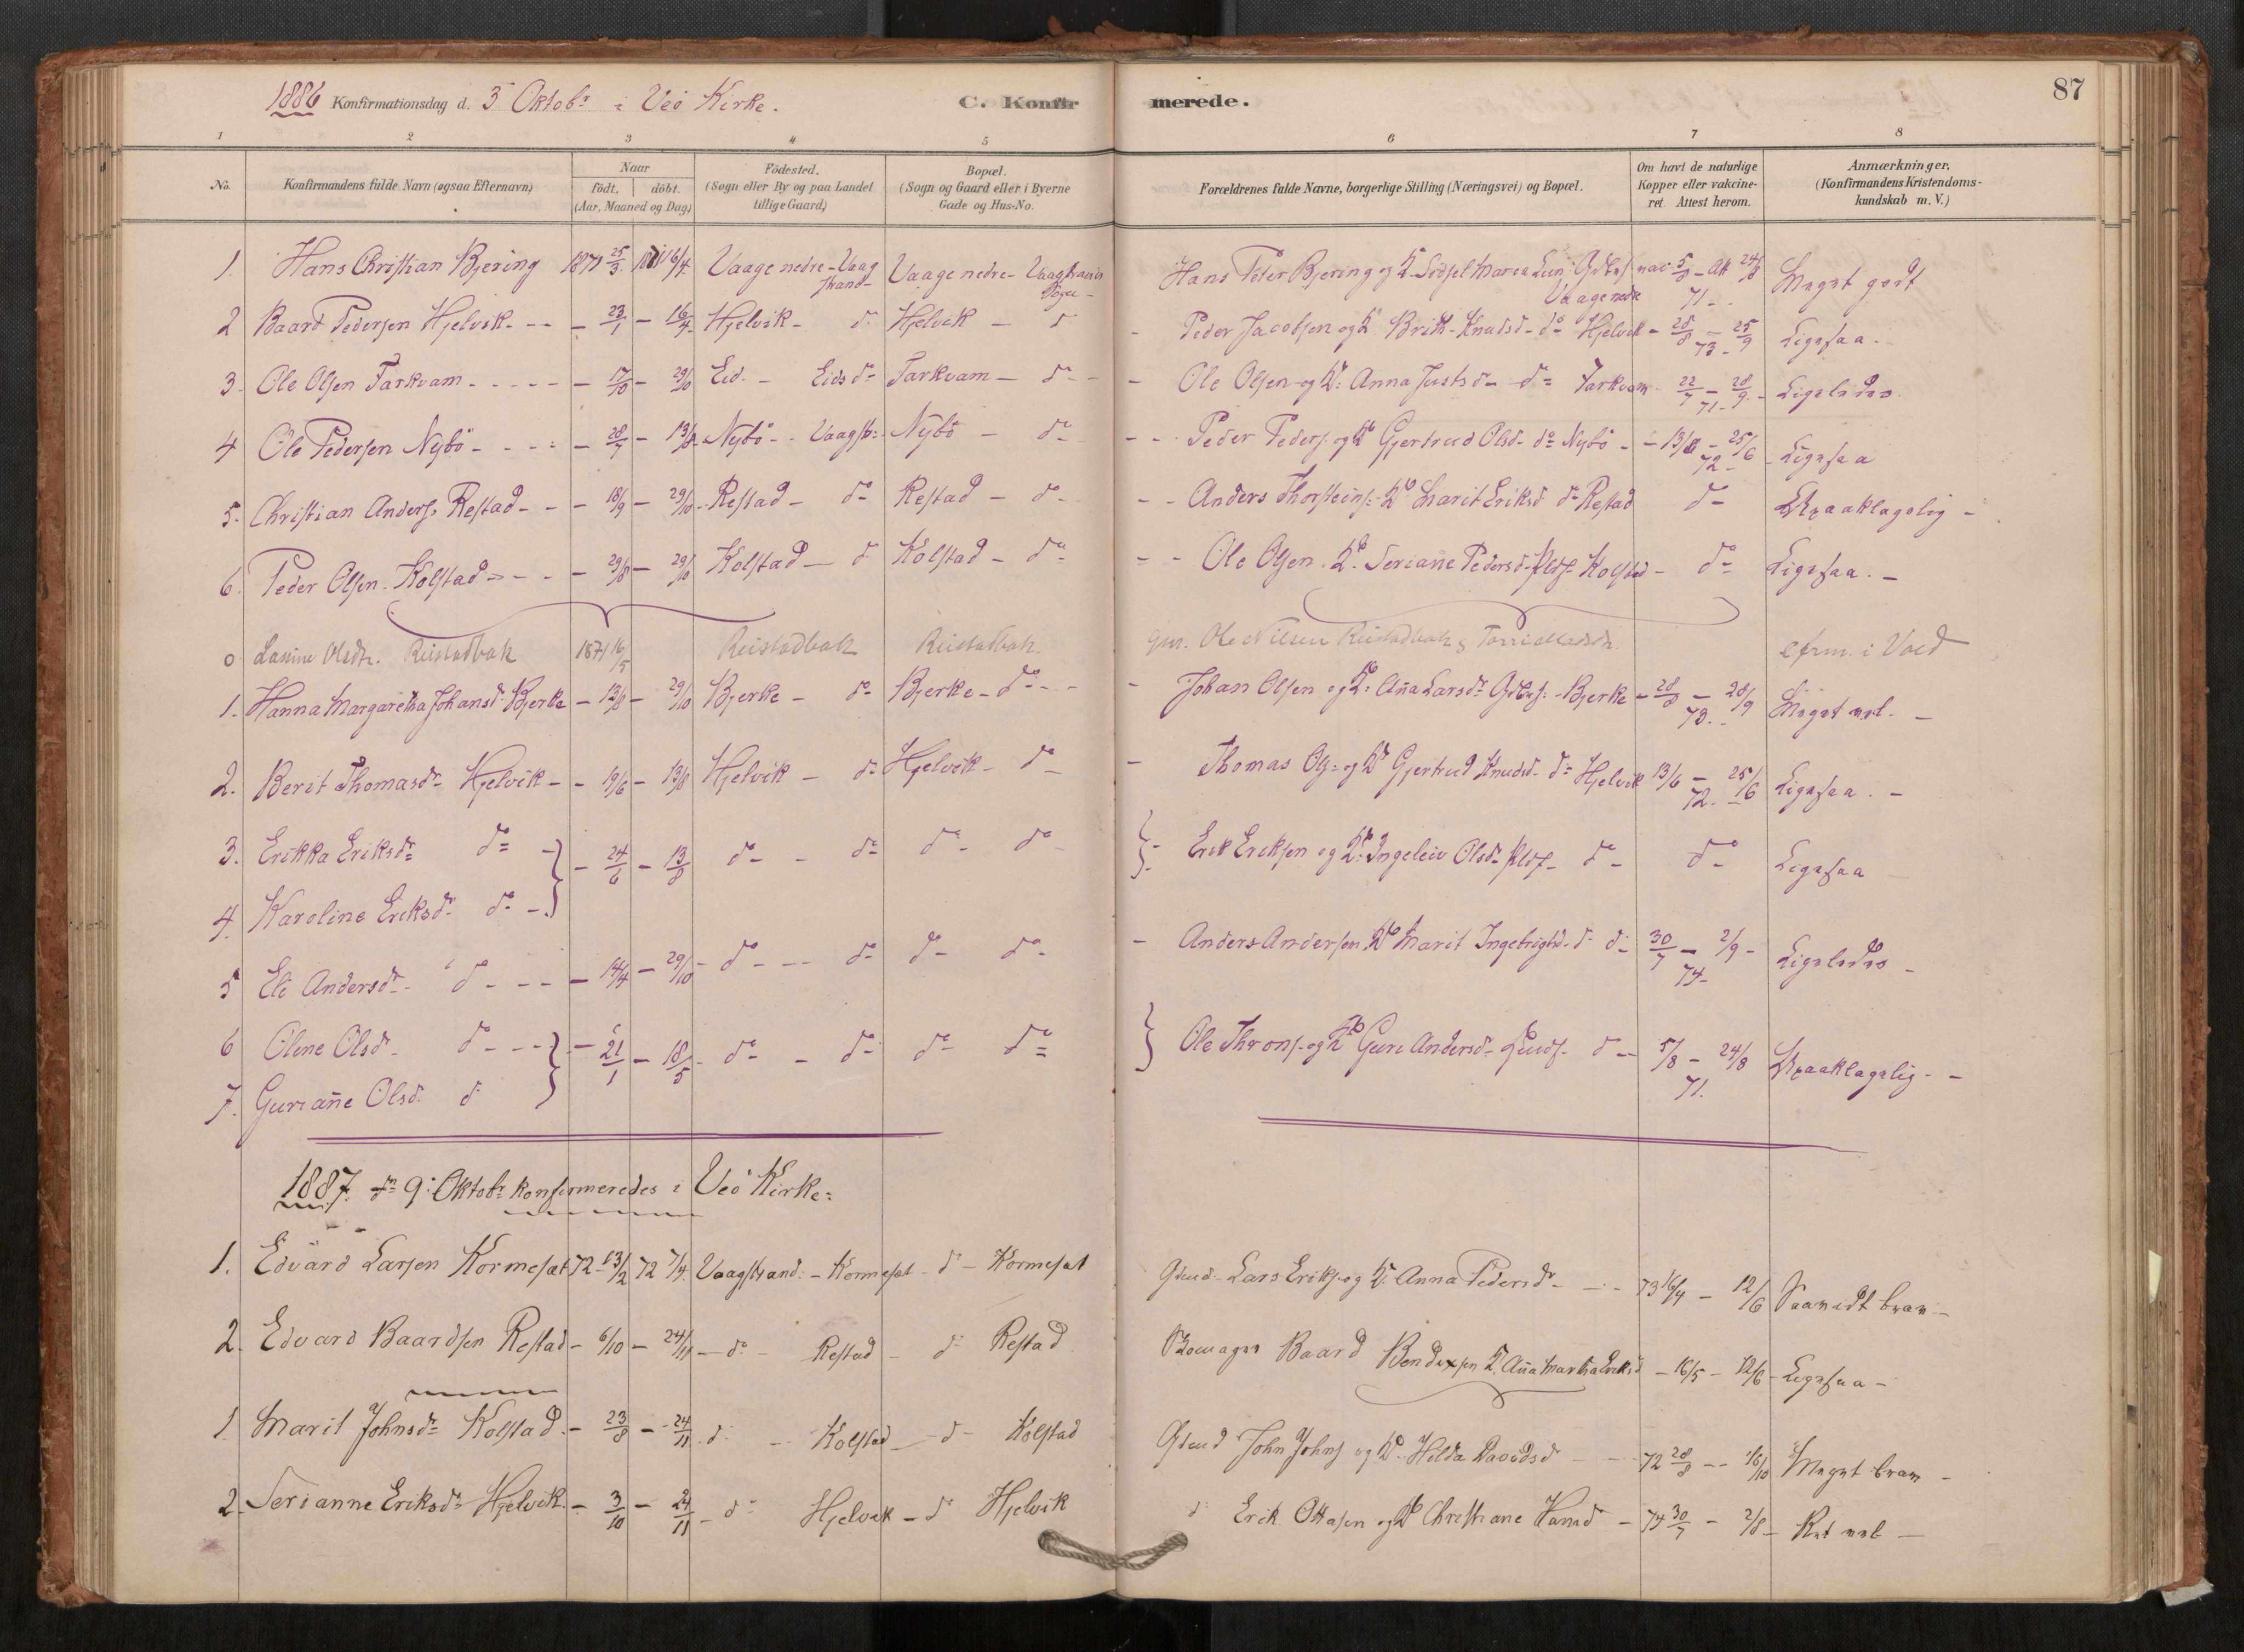 1886 Konfirmationsdag d. 3 Oktobr i Veö Kirke. C. Konfirmerede. 87
1 2 3 4 5 6 7 8
No. Konfirmandens fulde Navn (ogsaa Efternavn) Naar födt. döbt. (Aar, Maaned og Dag) Födested. (Sogn eller By og paa Landet tillige Gaard) Bopæl. (Sogn og Gaard eller i Byerne Gade og Hus-No. Forældrenes fulde Navne, borgerlige Stilling (Næringsvei) og Bopæl. Om havt de naturlige Kopper eller vakcineret. Attest herom. Anmærkninger. (Konfirmandens Kristendomskundskab m. V.)
1. Hans Christian Bjering 1871 25/3 1871 16/4 Vaage nedre - Vaagstrand - Vaage nedre - Hans Peter Bjering og Vaage nedre 5/8 - 24/8 71 - Meget godt
2 Baard Pedersen Hjelvik - - - 23/1 - 16/4 - Hjelvik - do Hjelvik - do - Peder Jacobsen og K. Brit Knudsd - do Hjelvik - 28/8 - 25/9 73 - Ligesaa.
3. Ole Olsen Tarkvam - - - - - 17/10 - 29/10 Eid. - Eids do Tarkvam - do - - Ole Olsen og K: Anna Justsd - do Tarkvam 22/7 - 28/9 - 71 - Ligeledes.
4 Ole Pedersen Nybö - - - - 28/7 - 13/8 - Nybö - - Vaagstr: Nybö - do - - Peder Peders. og Ko Gjertrud Olsd - do Nybö - - 13/6 - 25/6 72 - Ligesaa
5. Christian Anders. Restad - - - 18/9 - 29/10 - Restad - do Restad - do - - Anders Thorsteins: Ko Marit Eriksd do Restad do Upaaklagelig -
6. Peder Olsen Kolstad - - - - 29/8 - 29/10 Kolstad - do Kolstad - do - - Ole Olsen. Ko. Serianne Pedersd - Kolstad - do Ligesaa. -
o Lasine Olsdtr. Reistadbak 1871 16/5 Reistadbak Reistadbak Ole Nilsen Reistadbak & i Vold
1. Hanna Margaretha Johansd Bjerke - 13/8 - 29/10 Bjerke - do Bjerke - do - - - Johan Olsen og Ko: Anna Larsdr - Bjerke - 28/8 - 28/9 73. - Meget vel. -
2. Berit Thomasdr Hjelvik - - 19/6 - 13/8 Hjelvik - do Hjelvik - do - Thomas Ols: og Ko Gjertrud Knudsd - do Hjelvik 13/6 - 25/6 72. - Ligesaa. -
3. Erikka Eriksdr do - } - 24/6 - 13/8 do - - do do do } Erik Eriksen og Ko: Ingeleiv Olsd - do - do Ligesaa
4. Karoline Eriksdr do - }
5 Eli Andersdr - do - - - - 14/4 - 29/10 - do - - - do do do - Anders Andersen Ko Marit Ingebrigtsd. do do 30/7 - 2/9 - 74 - Ligeledes -
6 Oline Olsd - do - - - } - 21/1 - 18/5 - do - - do do do } Ole Throns. og Ko Guri Andersd - do - 5/8 - 24/8 71. Upaaklagelig - -
7. Gurianne Olsd. do }
1887. dn 9: Oktobr konfirmeredes i Veö Kirke:
1. Edvard Larsen Kormeset 72 - 13/2 72 7/4. Vaagstrand: - Kormeset - do - Kormeset Gbmd - Lars Eriks. og K. Anna Pedersdr - - - 73 16/4 - 12/6 Saavidt brav -
2. Edvard Baardsen Restad - 6/10 - 24/11 - do - Restad - do Restad Baard Bendixsen K. Anna Martha Eriksd - 16/5 - 12/6 - Ligesaa -
1. Marit Johnsdr Kolstad. - 23/8 - 24/11 do - Kolstad - do - Kolstad Gbmd John Johns. og Ko. Hilda Davidsd - - - 72 28/8 - - 16/10 Meget brav -
2. Serianne Eriksdr Hjelvik. - 3/10 - 24/11 - do Hjelvik - do Hjelvik do Erik Ottesen og Ko Christiane Hansd - 74 30/7 - 2/8 - Ret vel -